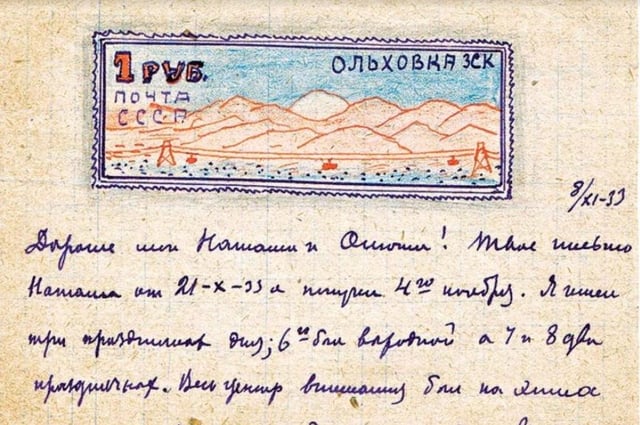 1 РУБ.
ОЛЬХОВКА ЗСК
ПОЧТА
СССР
8/XI-33
Дорогие мои Наташа и ! Твое письмо
Наташа от 21-X-33 я получил 4го ноября. Я имел
три праздничных дня; 6го был выходной а 7 и 8 два
праздничных. Весь центр внимания был на